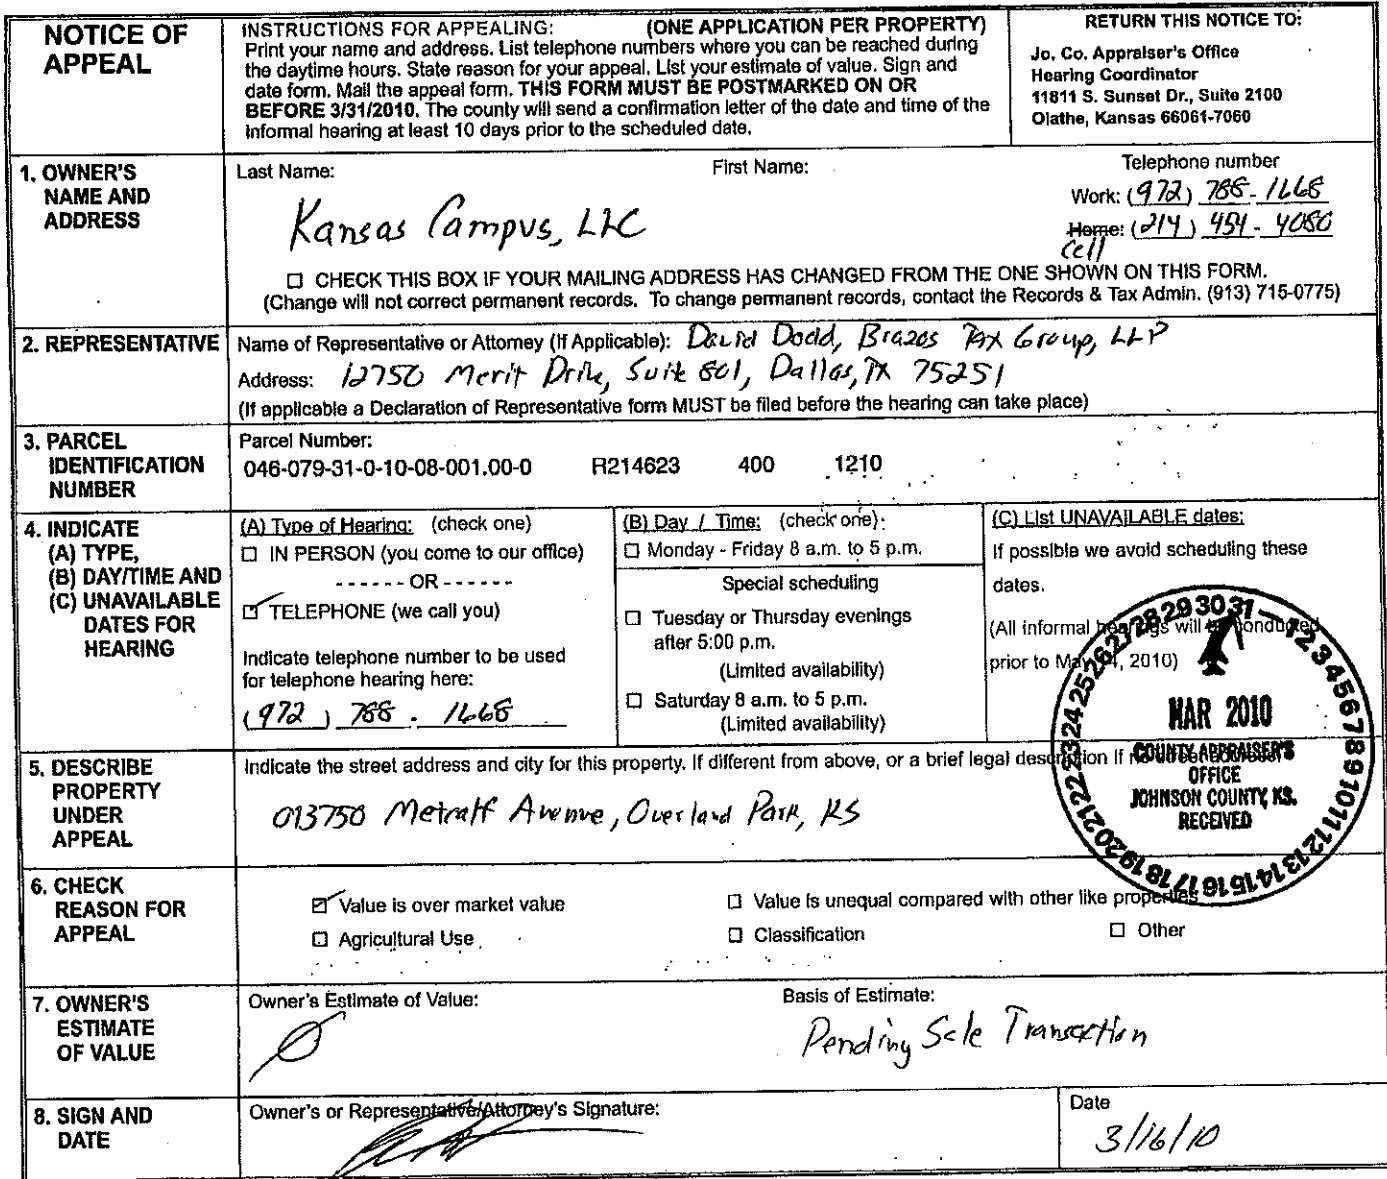 NOTICE OF APPEAL
INSTRUCTIONS FOR APPEALING: (ONE APPLICATION PER PROPERTY)
Print your name and address. List telephone numbers where you can be reached during
the daytime hours. State reason for your appeal. List your estimate of value. Sign and
date form. Mail the appeal form. THIS FORM MUST BE POSTMARKED ON OR
BEFORE 3/31/2010. The county will send a confirmation letter of the date and time of the
informal hearing at least 10 days prior to the scheduled date.
RETURN THIS NOTICE TO:
Jo. Co. Appraiser's Office
Hearing Coordinator
11811 S. Sunset Dr., Suite 2100
Olathe, Kansas 66061-7060
1. OWNER'S
NAME AND
ADDRESS
Last Name: First Name: Telephone number
Kansas Campus, LLC
Work: (972) 788-1668
Home: (214) 454-4080
cell
☐ CHECK THIS BOX IF YOUR MAILING ADDRESS HAS CHANGED FROM THE ONE SHOWN ON THIS FORM.
(Change will not correct permanent records. To change permanent records, contact the Records & Tax Admin. (913) 715-0775)
2. REPRESENTATIVE
Name of Representative or Attorney (If Applicable): David Dodd, Brazos Tax Group, LLP
Address: 12750 Merit Drive, Suite 801, Dallas, TX 75251
(If applicable a Declaration of Representative form MUST be filed before the hearing can take place)
3. PARCEL
IDENTIFICATION
NUMBER
Parcel Number:
046-079-31-0-10-08-001.00-0 R214623 400 1210
4. INDICATE
(A) TYPE,
(B) DAY/TIME AND
(C) UNAVAILABLE
DATES FOR
HEARING
(A) Type of Hearing: (check one)
☐ IN PERSON (you come to our office)
------ OR ------
☑ TELEPHONE (we call you)
Indicate telephone number to be used
for telephone hearing here:
(972) 788-1668
(B) Day / Time: (check one):
☐ Monday - Friday 8 a.m. to 5 p.m.
Special scheduling
☐ Tuesday or Thursday evenings
after 5:00 p.m.
(Limited availability)
☐ Saturday 8 a.m. to 5 p.m.
(Limited availability)
(C) List UNAVAILABLE dates:
If possible we avoid scheduling these
dates.
(All informal hearings will be conducted
prior to May , 2010)
1 2 3 4 5 6 7 8 9 10 11 12 13 14 15 16 17 18 19 20 21 22 23 24 25 26 27 28 29 30 31
MAR 2010
COUNTY APPRAISER'S
OFFICE
JOHNSON COUNTY, KS.
RECEIVED
5. DESCRIBE
PROPERTY
UNDER
APPEAL
Indicate the street address and city for this property. If different from above, or a brief legal description if
013750 Metcalf Avenue, Overland Park, KS
6. CHECK
REASON FOR
APPEAL
☑ Value is over market value ☐ Value is unequal compared with other like properties
☐ Agricultural Use ☐ Classification ☐ Other
7. OWNER'S
ESTIMATE
OF VALUE
Owner's Estimate of Value: Basis of Estimate:
Ø Pending Sale Transaction
8. SIGN AND
DATE
Owner's or Representative/Attorney's Signature: Date
3/16/10